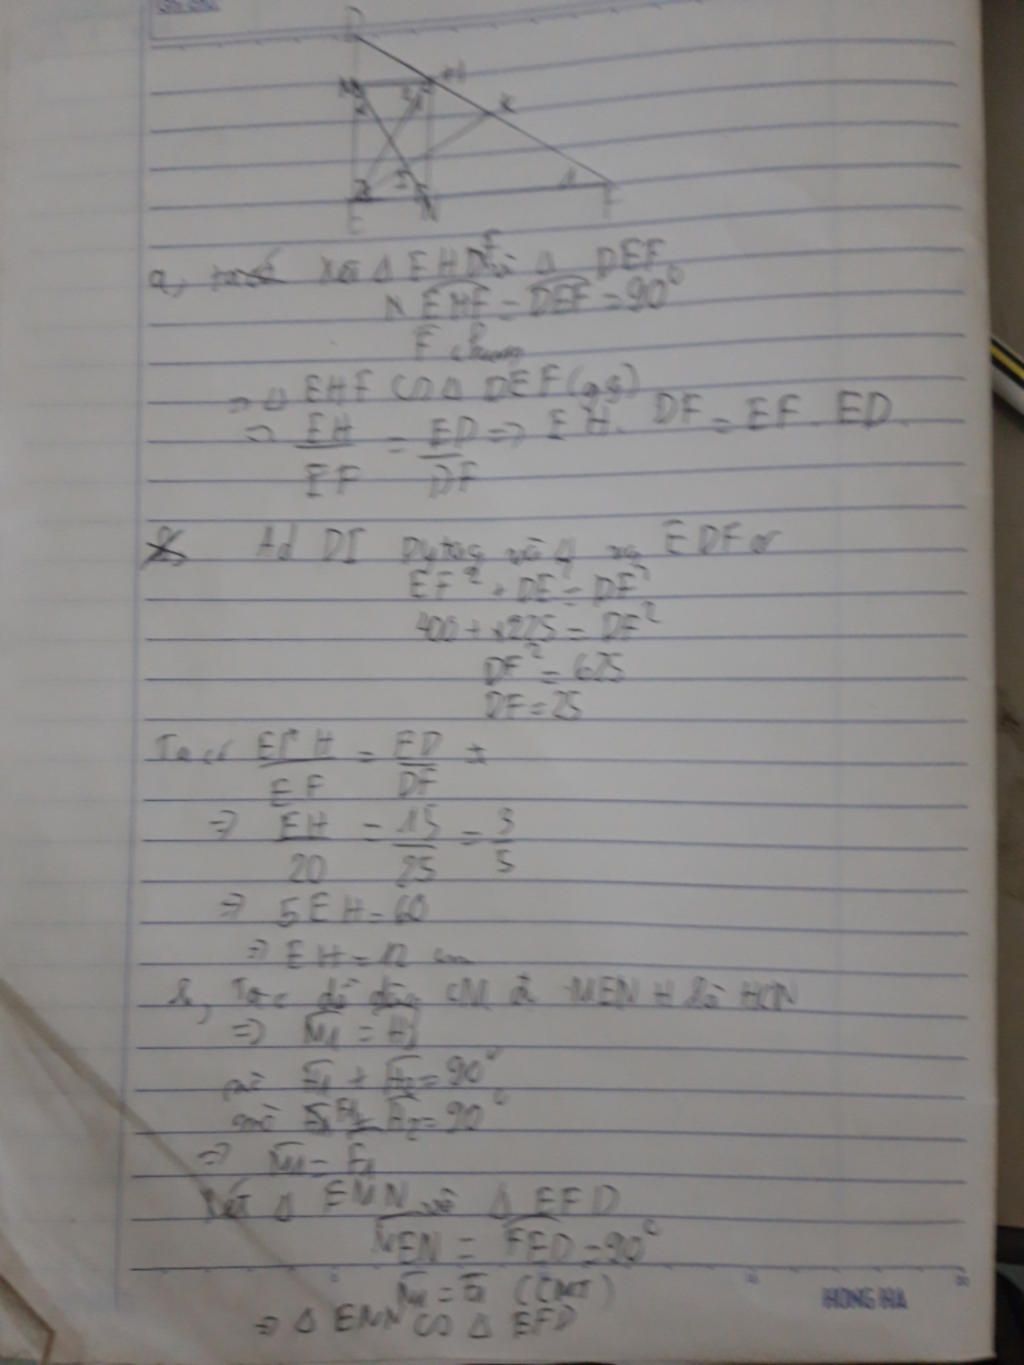 D
M H
K
I
E N F
a, Xét Δ EHF và Δ DEF
EHF = DEF = 90°
F chung
=> Δ EHF ∽ Δ DEF (gg)
=> EH/EF = ED/DF => EH. DF = EF. ED
Ad ĐL Pytag và Δ vg EDF có
EF² + DE² = DF²
400 + 225 = DF²
DF² = 625
DF = 25
Ta có EH/EF = ED/DF
=> EH/20 = 15/25 = 3/5
=> 5EH = 60
=> EH = 12 cm
b, Ta có dễ dàng CM đc MENH là HCN
=> M1 = H1
mà F1 + H2 = 90°
mà H1 + H2 = 90°
=> M1 = F1
Xét Δ EMN và Δ EFD
MEN = FED = 90°
M1 = F1 (CMT)
=> Δ EMN ∽ Δ EFD
HONG HA